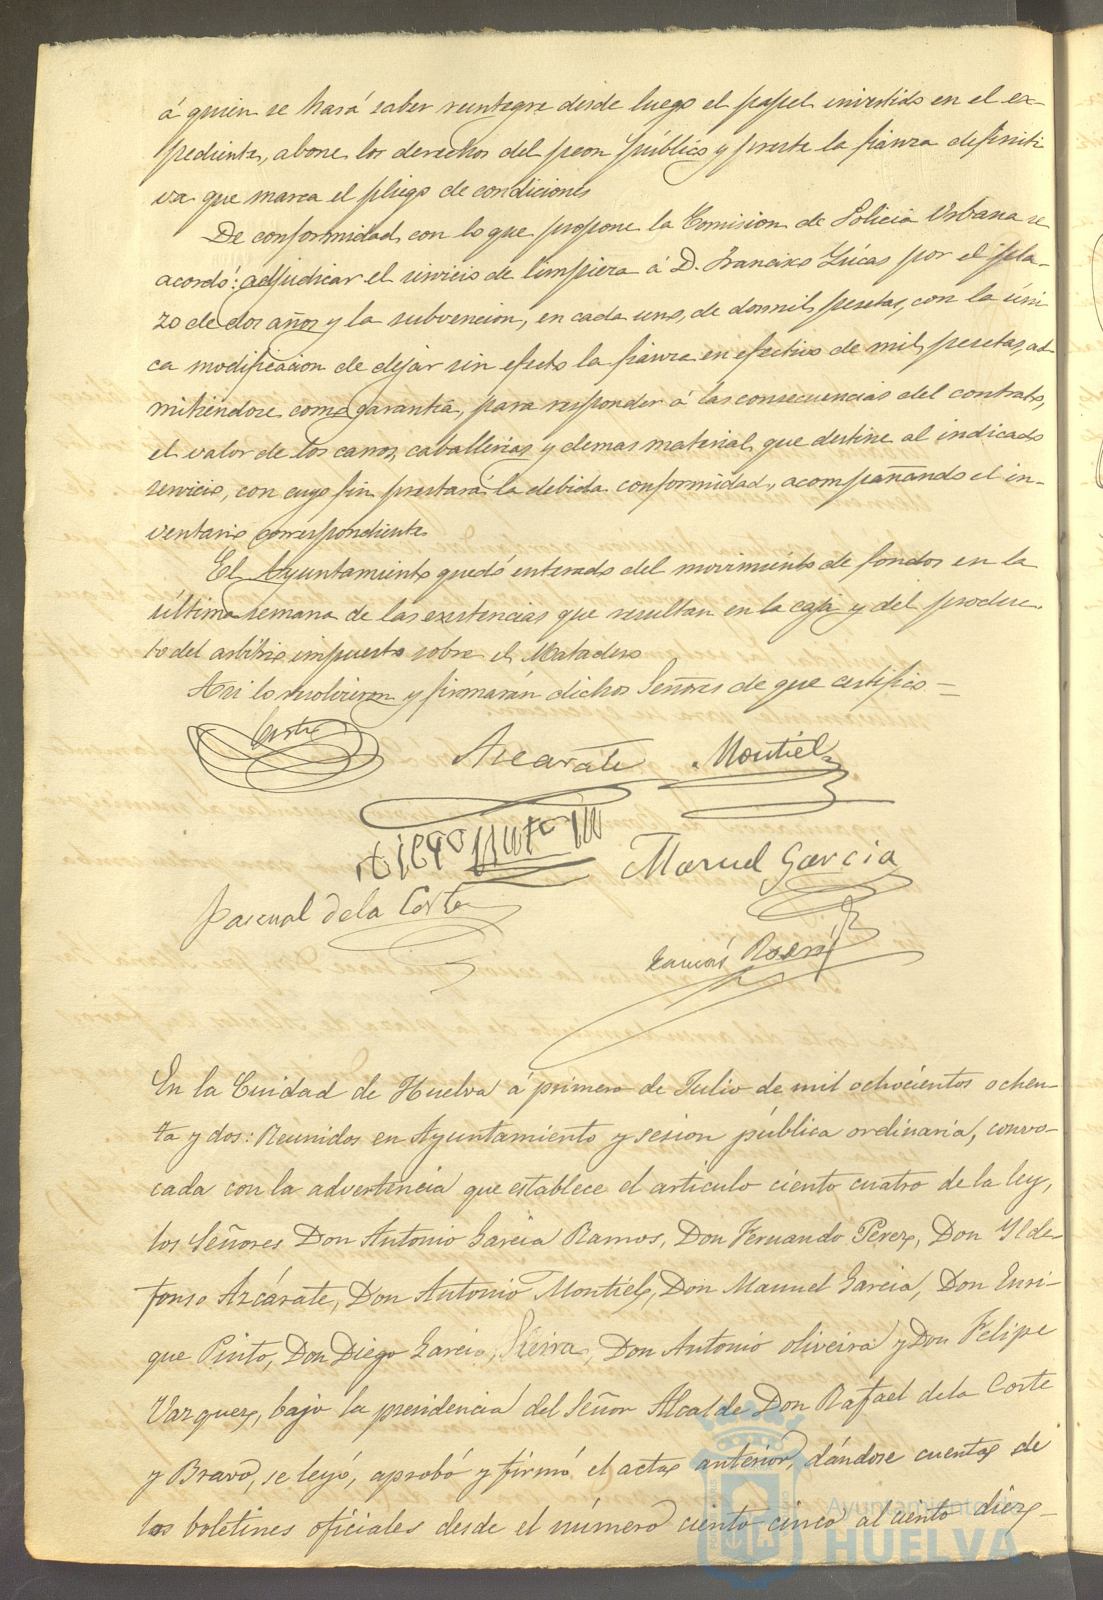 á quien se hará saber reintegre desde luego el papel invertido en el ex-
pediente, abone los derechos del peon público y preste la fianza definiti
va que marca el pliego de condiciones
De conformidad con lo que propone la Comision de Policia Urbana se
acordó: adjudicar el servicio de limpieza á D. Francisco Lúcas por el pla-
zo de dos años y la subvencion, en cada uno, de dosmil pesetas, con la úni
ca modificacion de dejar sin efecto la fianza en efectivo de mil pesetas, ad
mitiendose como garantia, para responder á las consecuencias del contrato,
el valor de los carros, caballerias y demas material que destine al indicado
servicio, con cuyo fin prestará la debida conformidad, acompañando el in-
ventario correspondiente
El Ayuntamiento quedó enterado del movimiento de fondos en la
última semana de las existencias que resultan en la caja y del produc-
to del arbitrio impuesto sobre el Matadero
Asi lo resolvieron y firmarán dichos Señores de que certifico =
Corte
Azcarate
Montiel
Manuel Garcia
Pascual de la Corte
En la Cuidad de Huelva á primero de Julio de mil ochocientos ochen-
ta y dos: Reunidos en Ayuntamiento y sesion pública ordinaria, convo-
cada con la advertencia que establece el articulo ciento cuatro de la ley,
los Señores Don Antonio Garcia Ramos, Don Fernando Perez, Don Ylde-
fonso Azcárate, Don Antonio Montiel, Don Manuel Garcia, Don Enri-
que Pinto, Don Diego Garcia, Sierra, Don Antonio Oliveira y Don Felipe
Vazquez, bajo la presidencia del Señor Alcalde Don Rafael de la Corte
y Bravo, se leyó, aprobó y firmó el acta anterior, dándose cuenta de
los boletines oficiales desde el número ciento cinco al ciento diez-
Ayuntamiento de
HUELVA